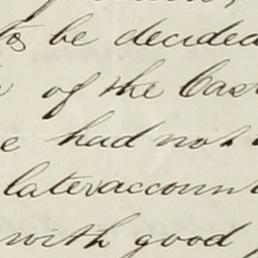 to be decided
of the Cas
e had not
later accoun
with good